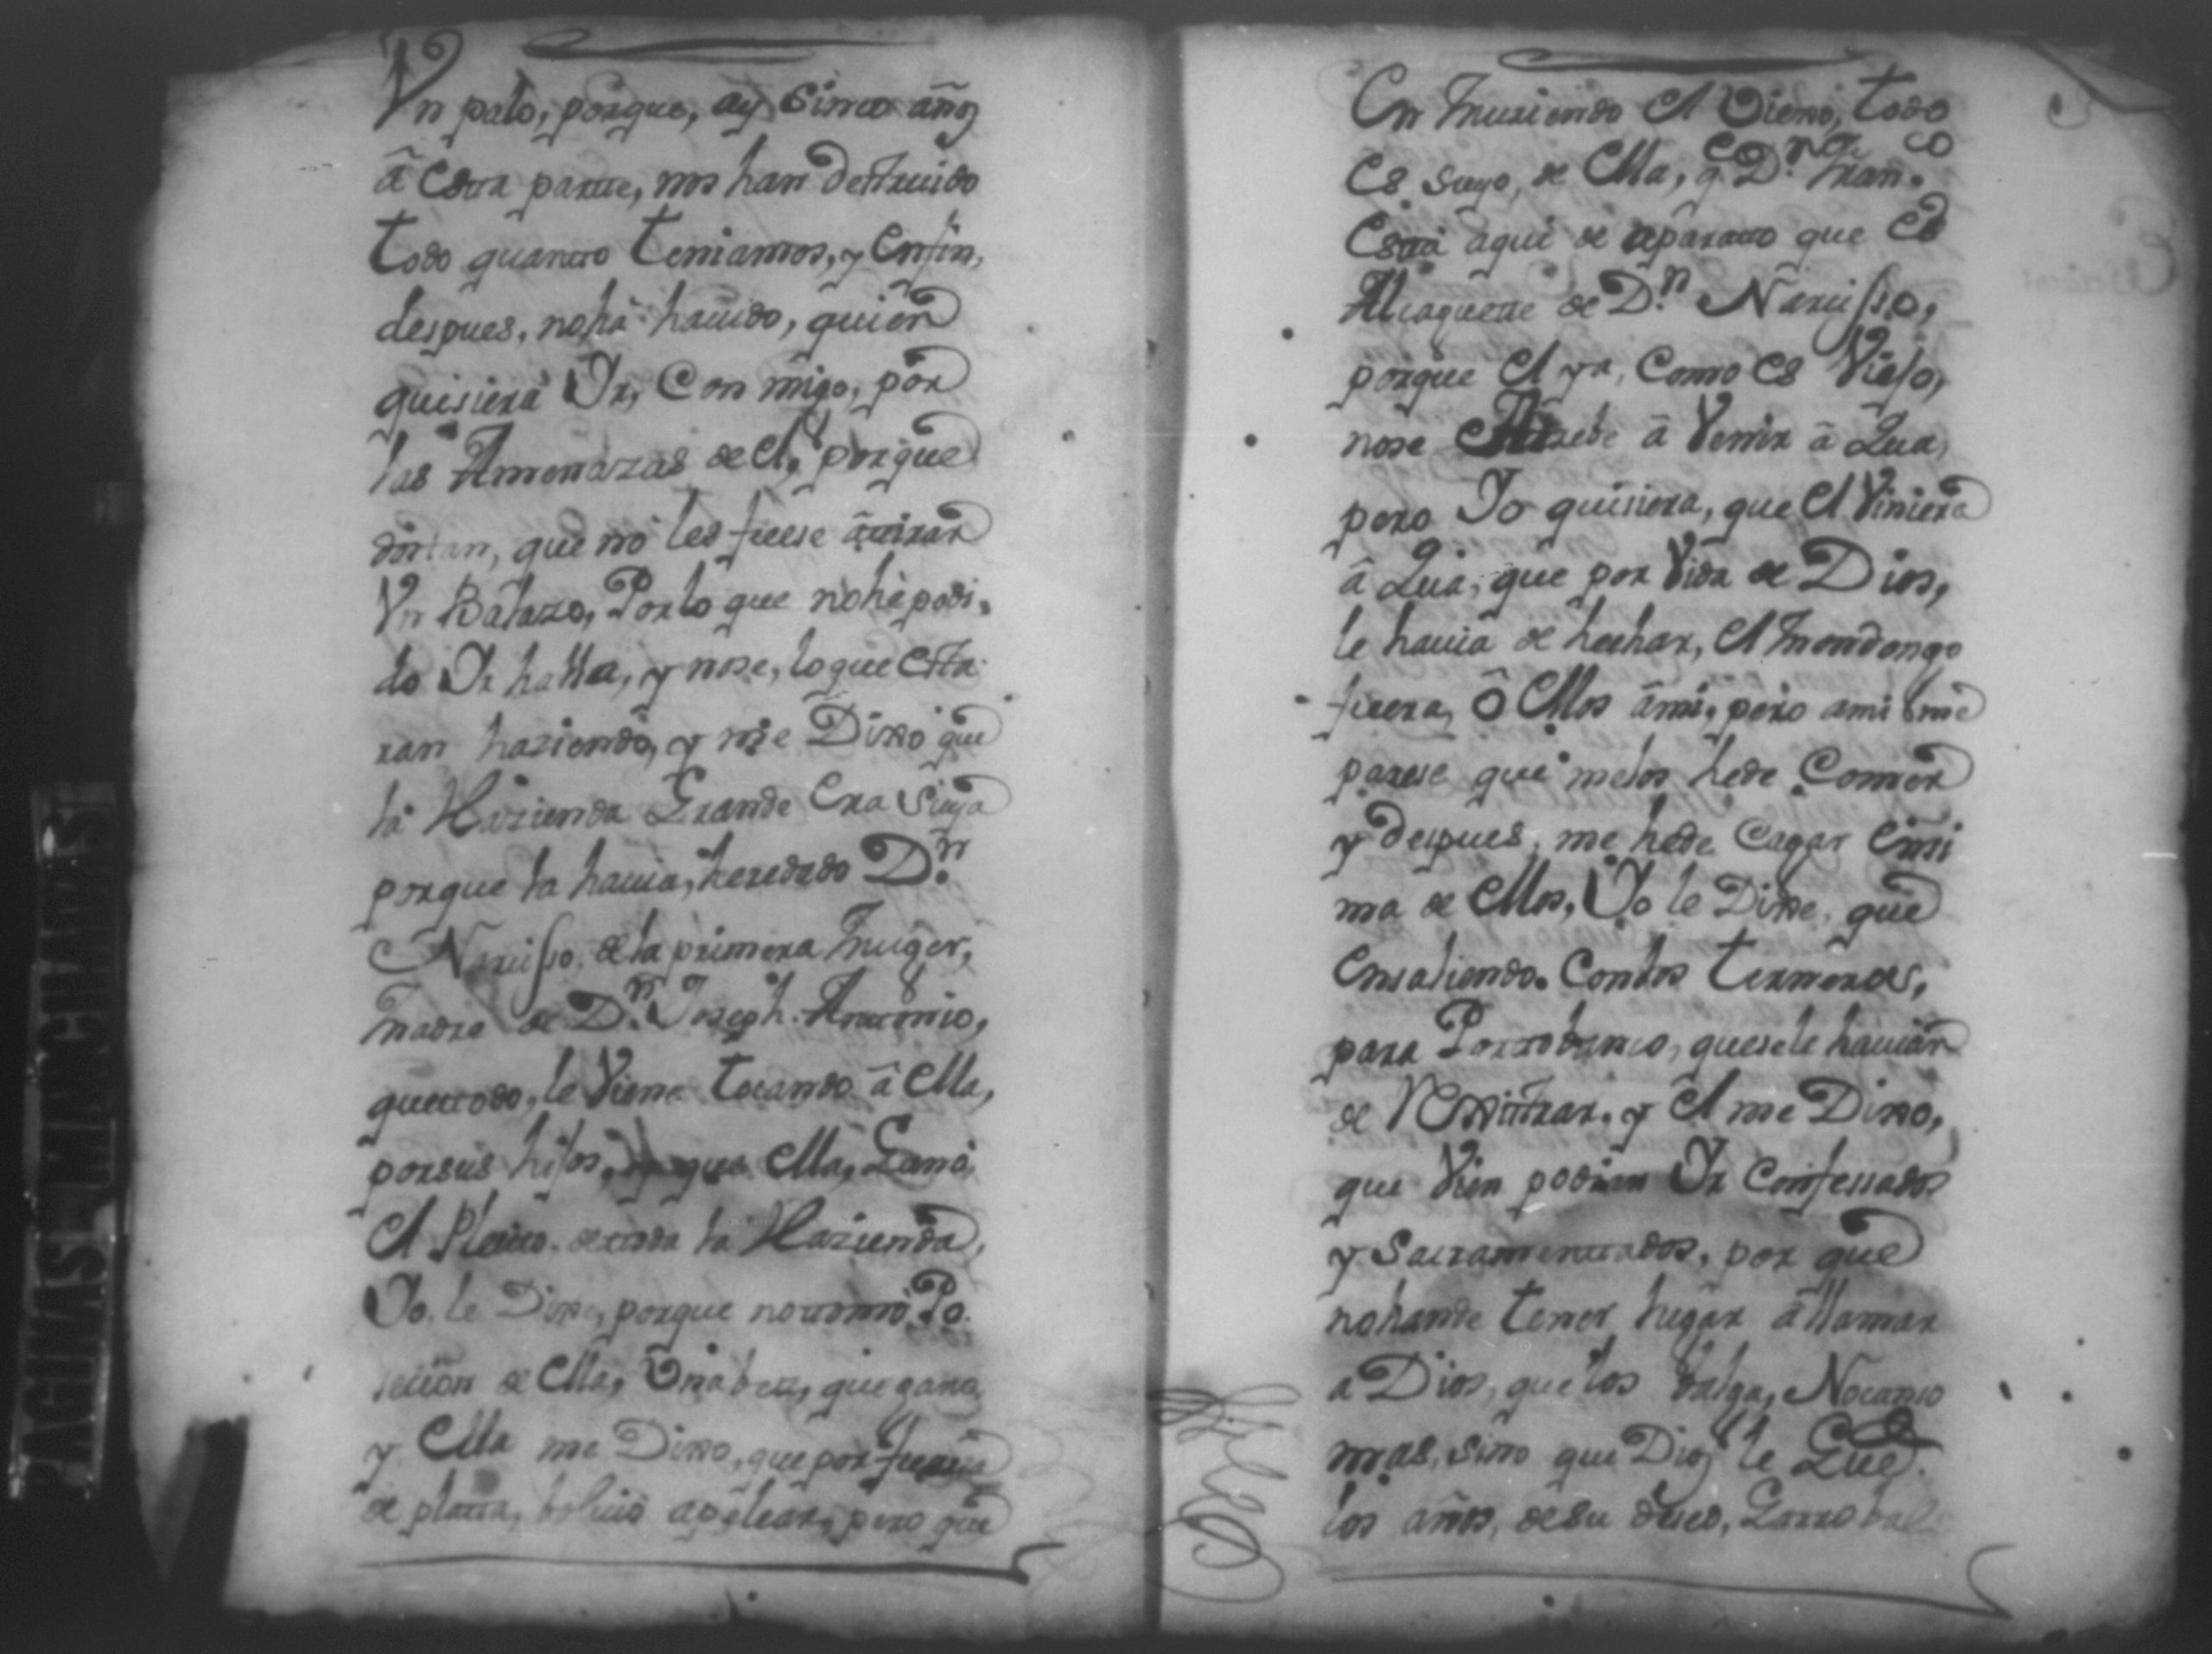 Vn palo, porque, ay Sinco años
â Esta parte, nos han destruido
todo quanto teniamos, y Enfin,
despues, nohà hauido, quien
quisiera Ir, Con migo, por
las Amenazas de el, porque
que no les fuese â tirar
Vn Balazo, Porlo que nohè podi,
do Ir halla, y nose, loque Esta
ran haziendo, y me Dixo que
la Hazienda Grande Era Suya
porque la hauia, heredado D.n
Narcisso. dela primera muger,
madre de D.n Joseph. Antonio,
quetodo, le Viene tocando â Ella,
porsus hijos, y que Ella, Ganó
El Pleito. detoda la Hazienda,
Yo. le Dixe, porque notomó Po.
secion de Ella, Vna bez, que gano
y Ella me Dixo, que por fuerza
de plata, boluió apelear, pero que
En muriendo El Viejo, todo
Es suyo, de Ella, q.e D.n Fran.co
Està aqui de aparato que Es
Alcaguete de D.n Narcisso,
porque El ya, Como Es Viejo,
nose Atrebe â Venir â
pero Yo quisiera, que El Viniera
â que por Vida de Dios,
le hauia de hechar, El mondongo
fuera, ô Ellos âmi, pero ami me
parese que melos hede Comer
y despues, me hede Cagar Ensi
ma de Ellos, Yo le Dixe, que
Ensaliendo. Conlos terneros,
para que sele hauian
de y El me Dixo,
que Vien podian Ir Confessados
y Sacramentados, por que
nohande tener lugar â llamar
a Dios, quelos Valga, Nocanso
mas, sino que Dios le Gue.
los años, desu deseo,